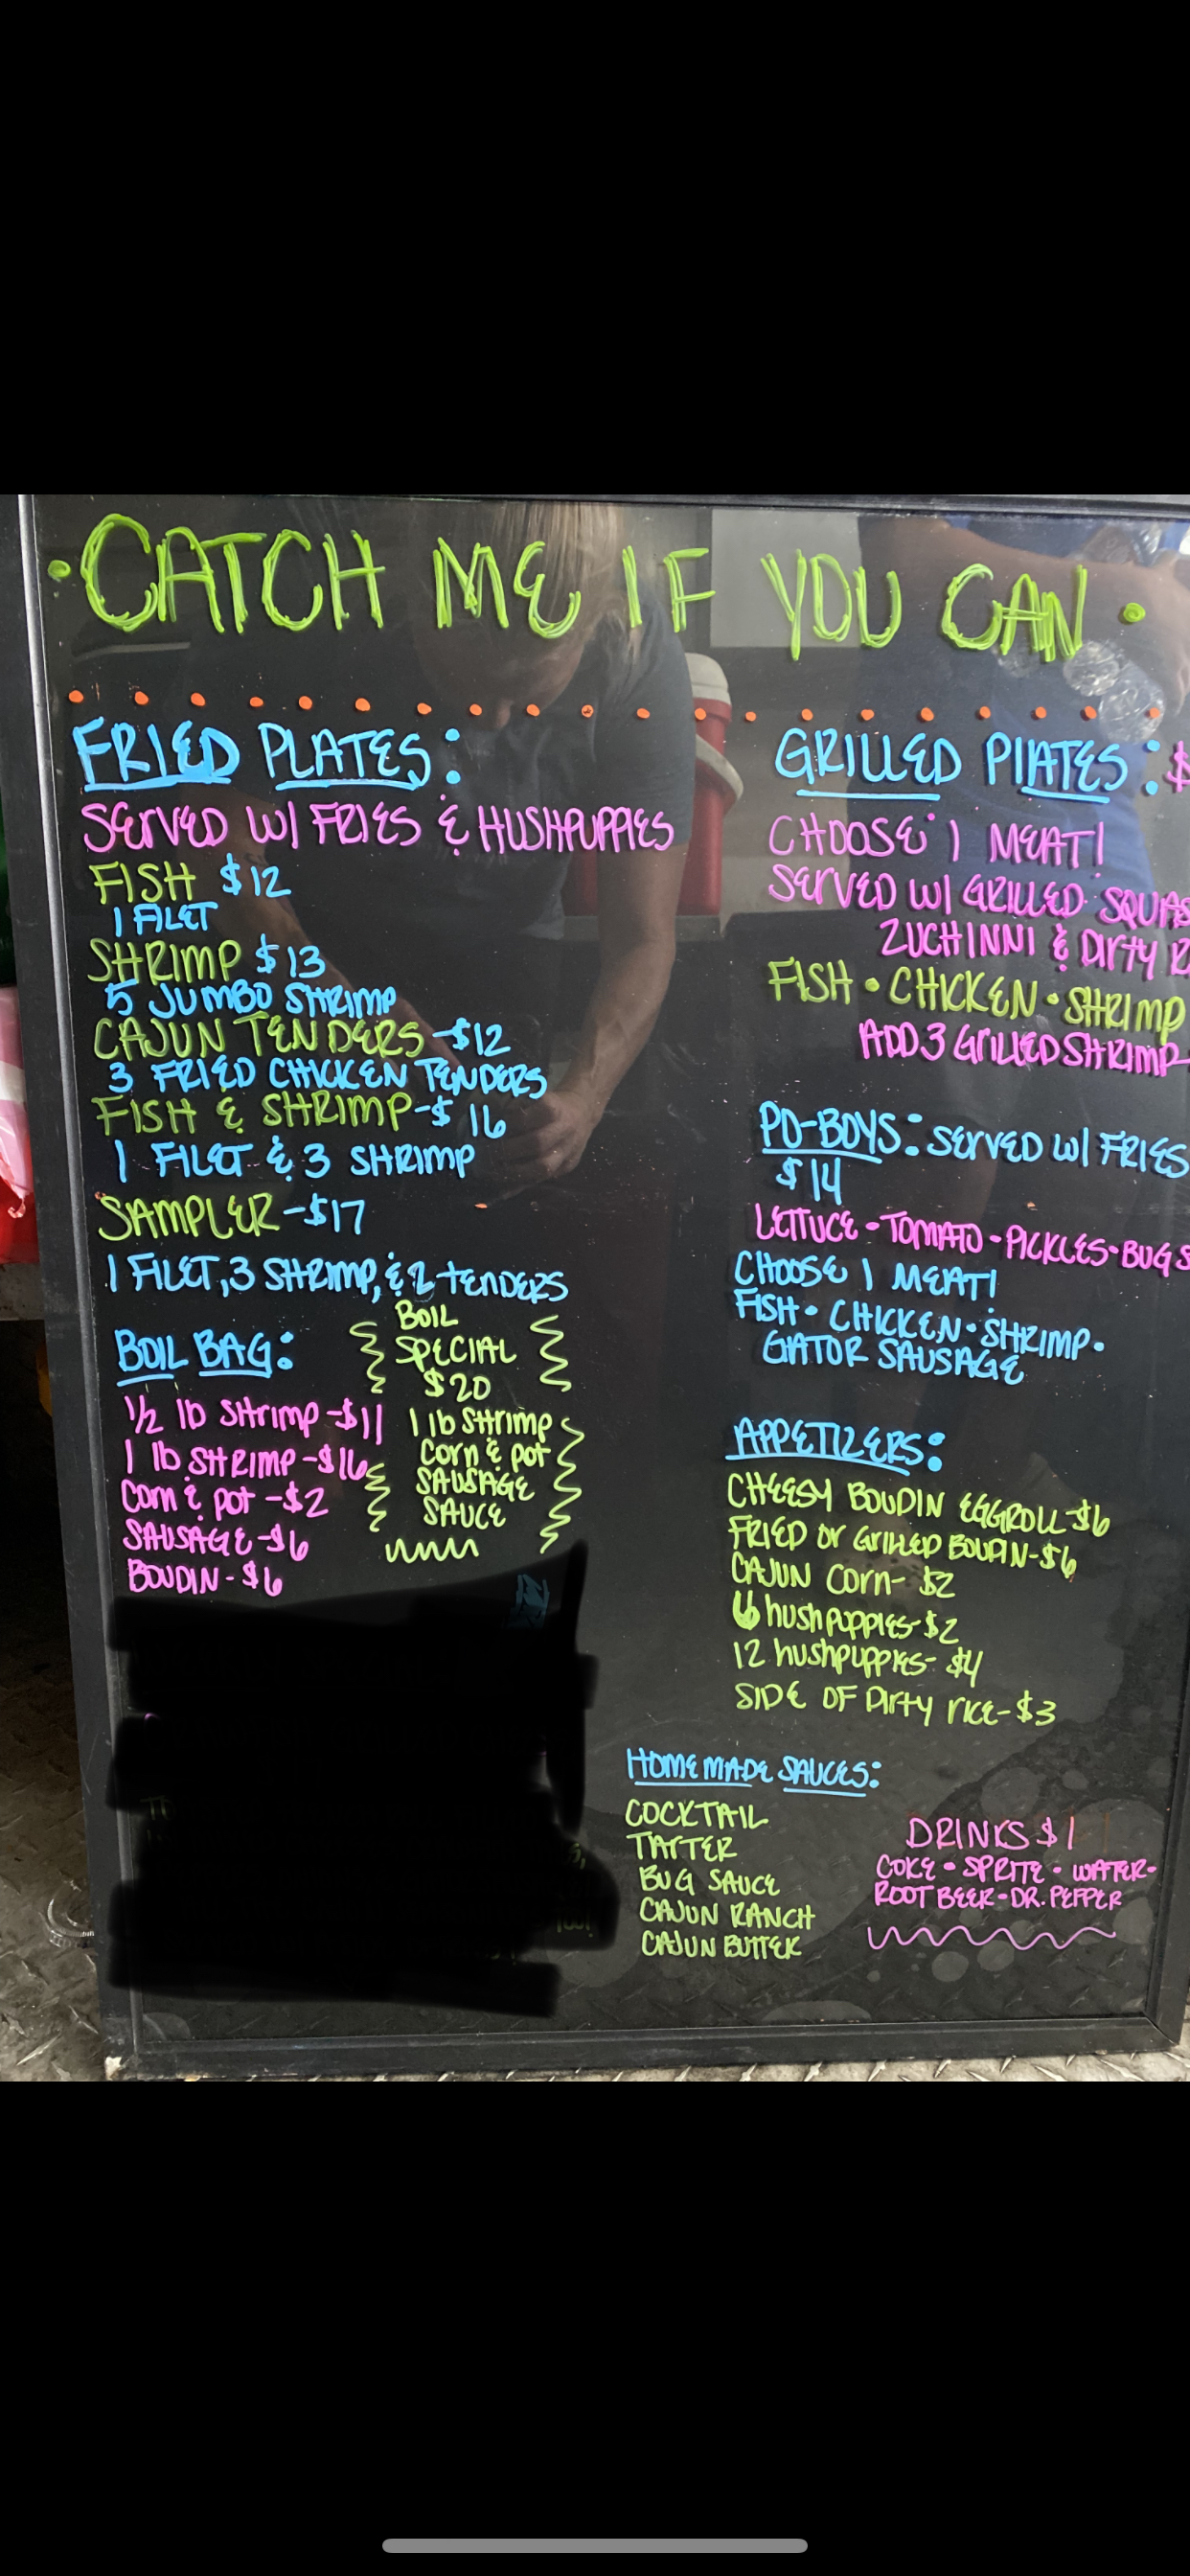 • CATCH ME IF YOU CAN •
FRIED PLATES:
SERVED W/ FRIES & HUSHPUPPIES
FISH $12
1 FILET
SHRIMP $13
5 JUMBO SHRIMP
CAJUN TENDERS -$12
3 FRIED CHICKEN TENDERS
FISH & SHRIMP -$16
1 FILET & 3 SHRIMP
SAMPLER -$17
1 FILET, 3 SHRIMP, & 2 TENDERS
BOIL BAG:
1/2 lb SHrimp -$11
1 lb SHRIMP -$16
Corn & pot -$2
SAUSAGE -$6
BOUDIN - $6
BOIL
SPECIAL
$20
1 lb SHrimp
Corn & pot
SAUSAGE
SAUCE
GRILLED PlATES: $
CHOOSE 1 MEAT!
SERVED W/ GRILLED SQUAS
ZUCHINNI & DIrty R
FISH • CHICKEN • SHRIMP
ADD 3 GRILLED SHRIMP
PO-BOYS: SERVED W/ FRIES
$14
LETTUCE • TOMATO • PICKLES • BUG S
CHOOSE 1 MEAT!
FISH • CHICKEN • SHRIMP •
GATOR SAUSAGE
APPETIZERS:
CHEESY BOUDIN EGGROLL -$6
FRIED Or GRILLED BOUDIN -$6
CAJUN Corn - $2
6 hushpuppies - $2
12 hushpuppies - $4
SIDE OF DIrty rice - $3
HOMEMADE SAUCES:
COCKTAIL
TARTER
BUG SAUCE
CAJUN RANCH
CAJUN BUTTER
DRINKS $1
COKE • SPRITE • WATER •
ROOT BEER • DR. PEPPER